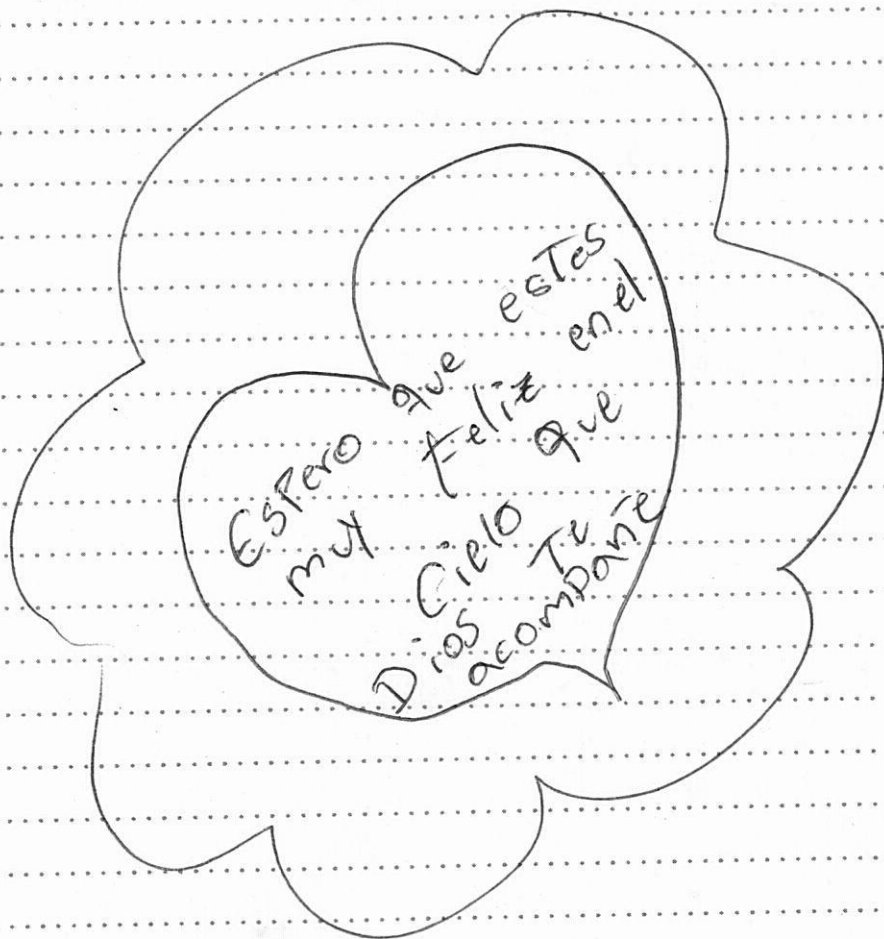 Espero que estes
muy feliz en el
Cielo que
Dios Te
acompañe